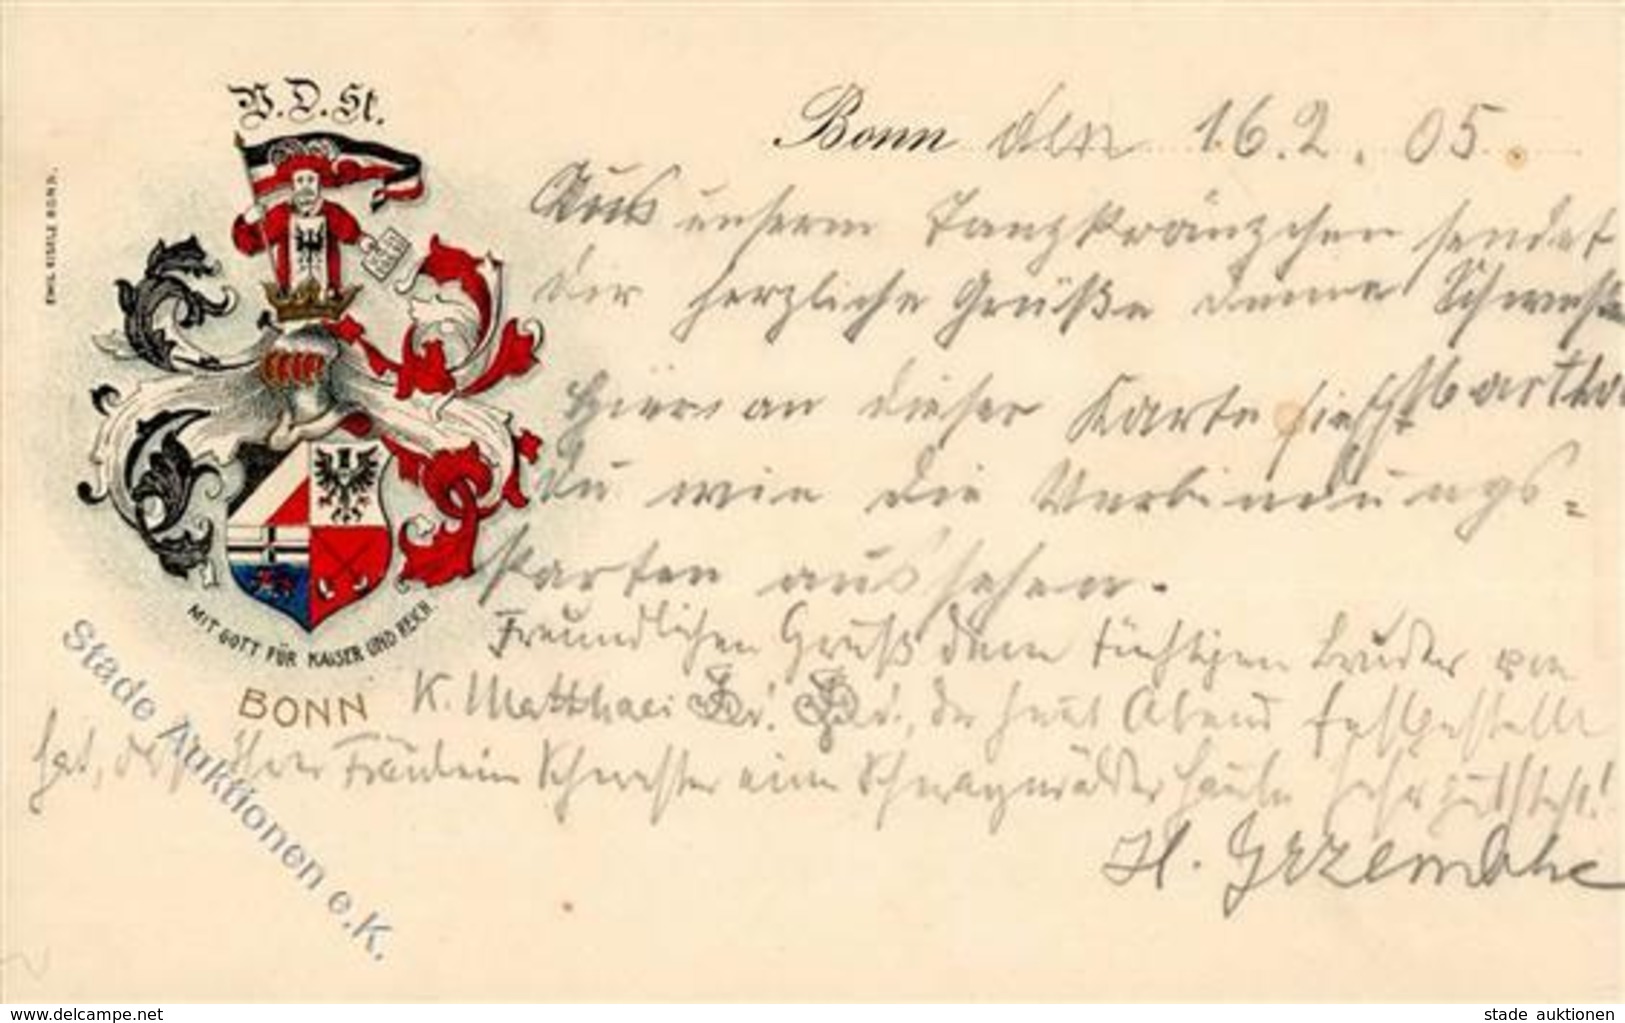 V.D.St.
EMIL EISELE BONN.
Bonn den 16.2.05.
Aus unserm Tanzkränzchen sendet
dir herzliche Grüße deine Schwester
Martha
Hier an dieser Karte siehst
du wie die Verbindungs-
karten aussehen.
Freundlichen Gruß dem tüchtigen Bruder von
K. Matthaei der heut Abend festgestellt
hat, daß Ihrer Fräulein Schwester eine Schwarzwälder Haube sehr gut steht!
H.
MIT GOTT FÜR KAISER UND REICH.
BONN
Stade Auktionen e.K.
www.delcampe.net
stade auktionen